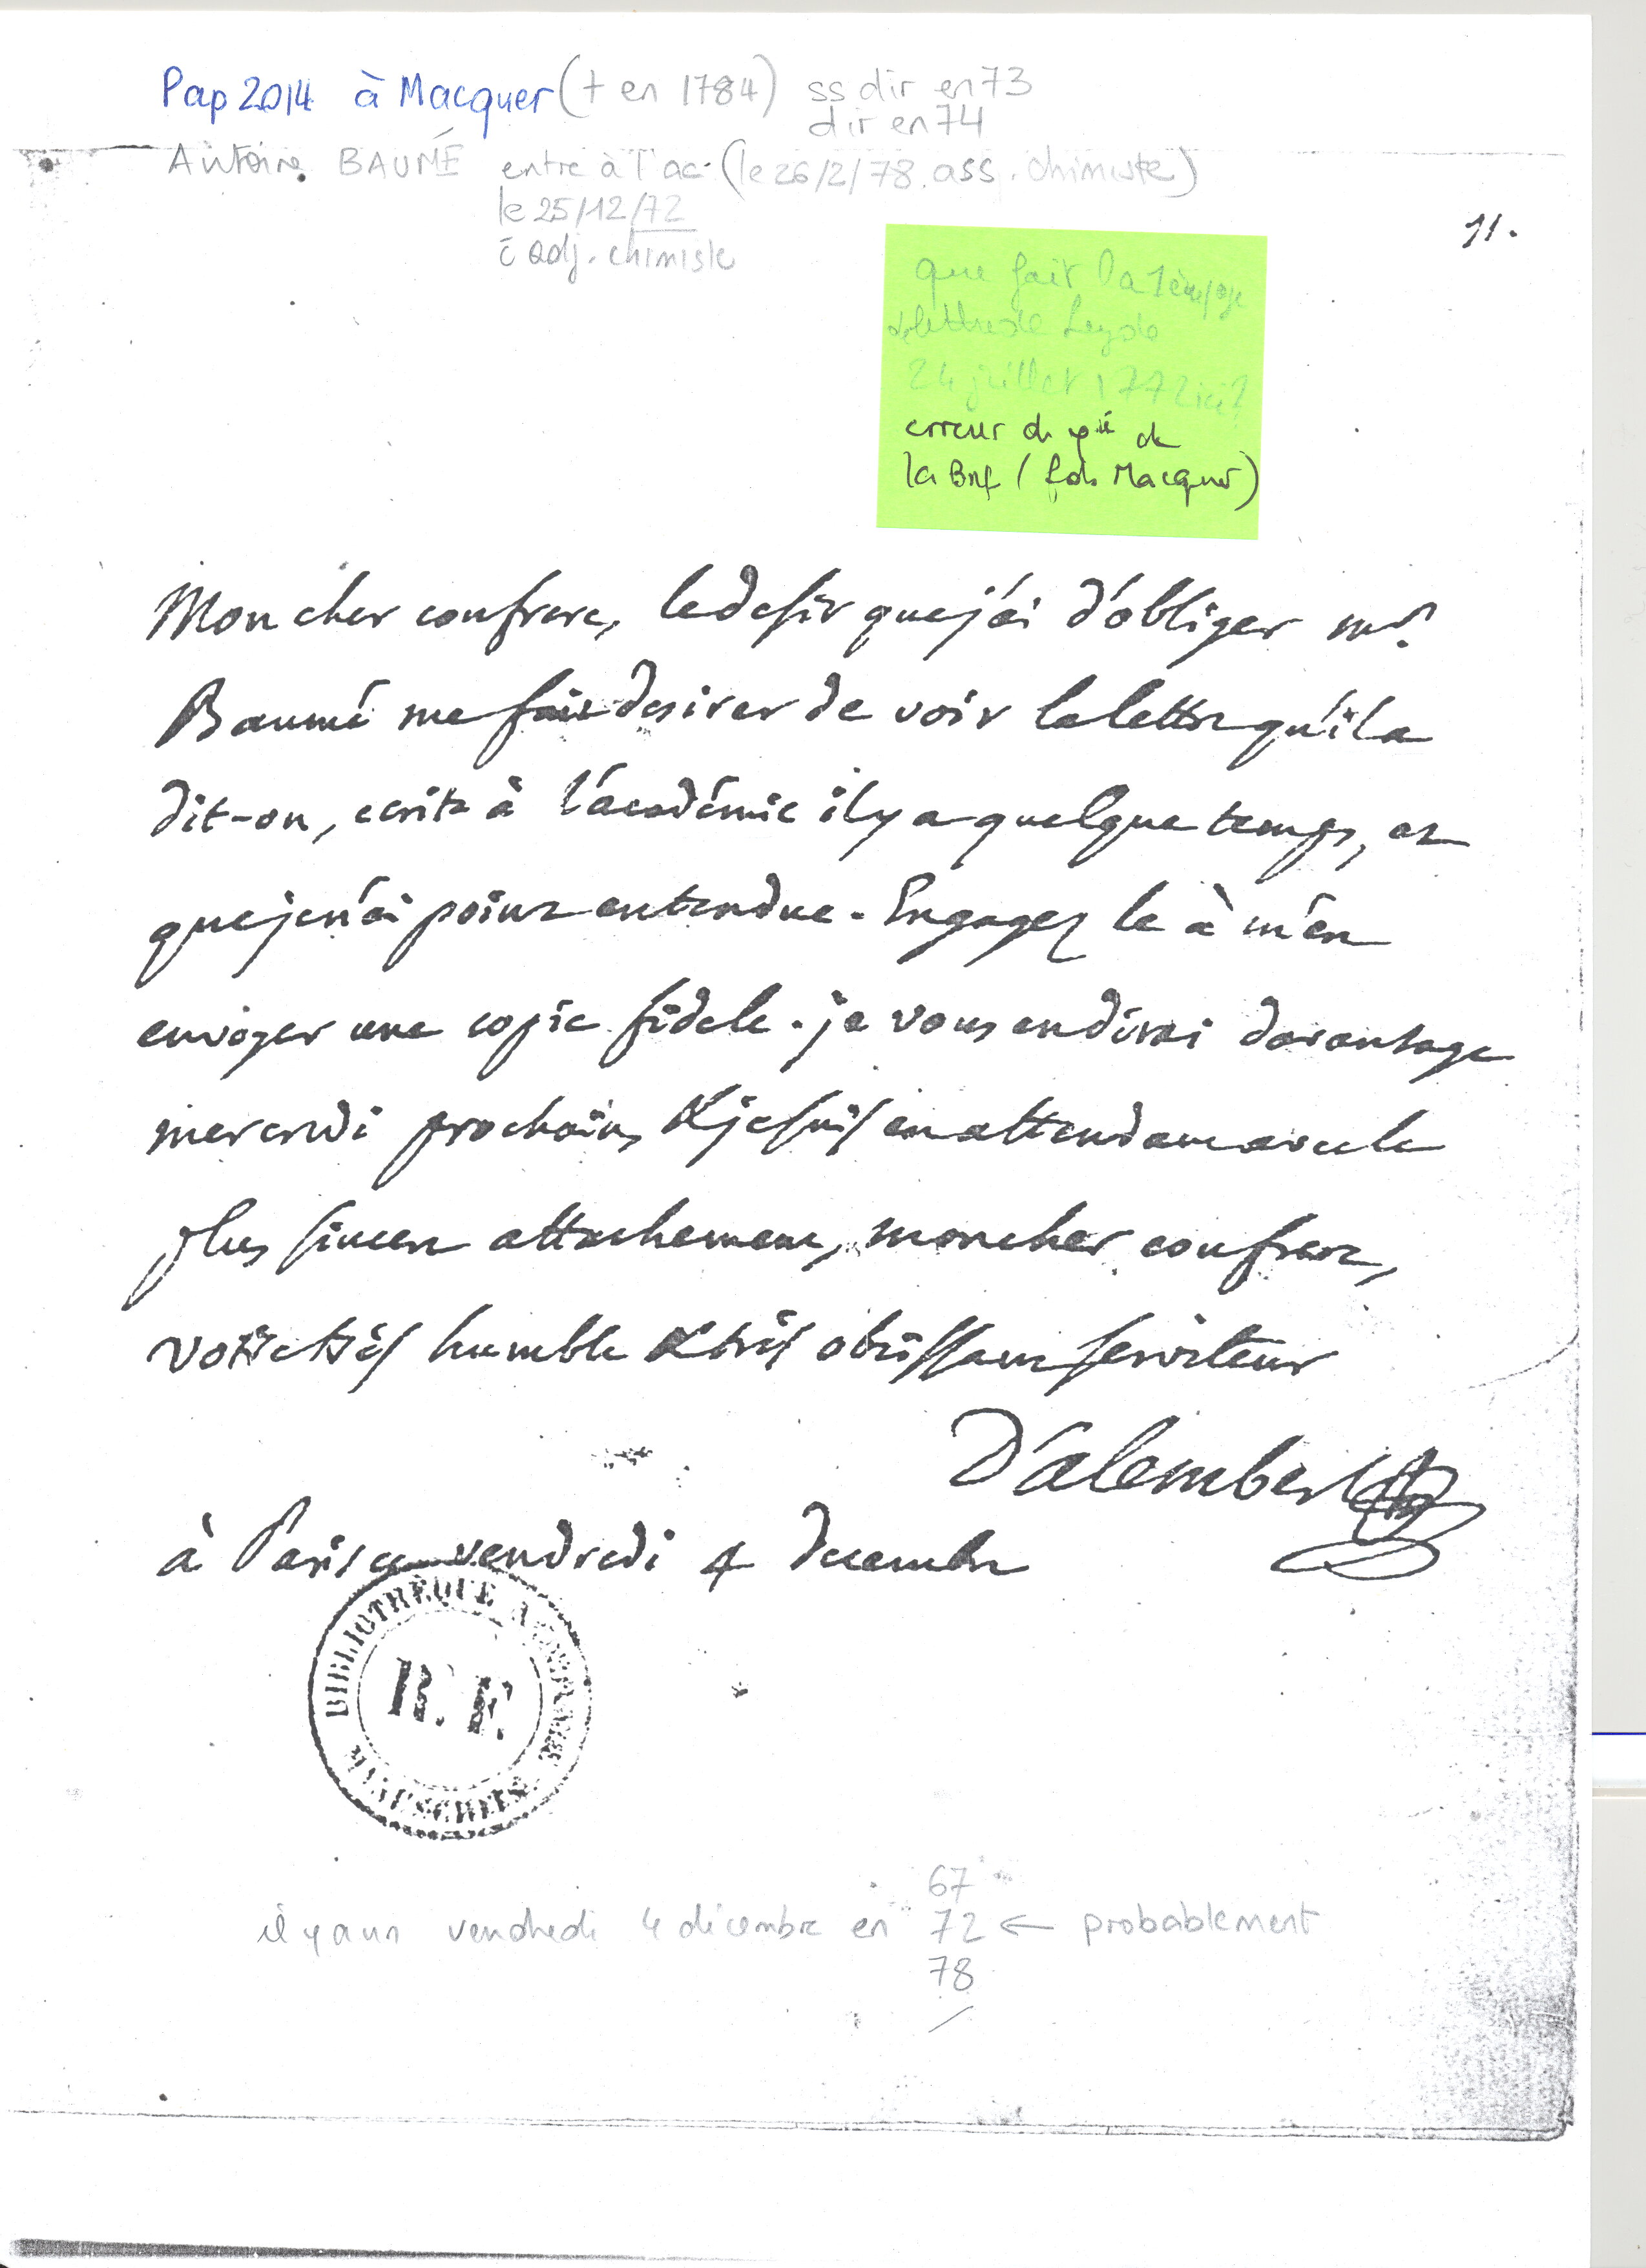 Pap 2014 à Macquer († en 1784) ss dir en 73
dir en 74
Antoine BAUMÉ entre à l'ac. (le 26/2/78. ass. chimiste)
le 25/12/72
adj. chimiste
11.
que fait la 1ère page
de lettre de Leyde
24 juillet 1772 ici?
erreur de de
la Bnf (fds Macquer)
Mon cher confrere, le desir que j'ai d'obliger mr.
Baumé me fait desirer de voir la lettre qu'il a
dit-on, ecrite à l'académie il y a quelque temps, et
que je n'ai point entendue. Engagez le à m'en
envoyer une copie fidele. je vous en dirai davantage
mercredi prochain, & je suis en attendant avec le
plus sincere attachement, mon cher confrere,
votre très humble & très obéissant serviteur
D'alembert
à Paris ce vendredi 4 decembre
BIBLIOTHEQUE NATIONALE MANUSCRITS
R.F.
67
il y a un vendredi 4 décembre en 72 ← probablement
78